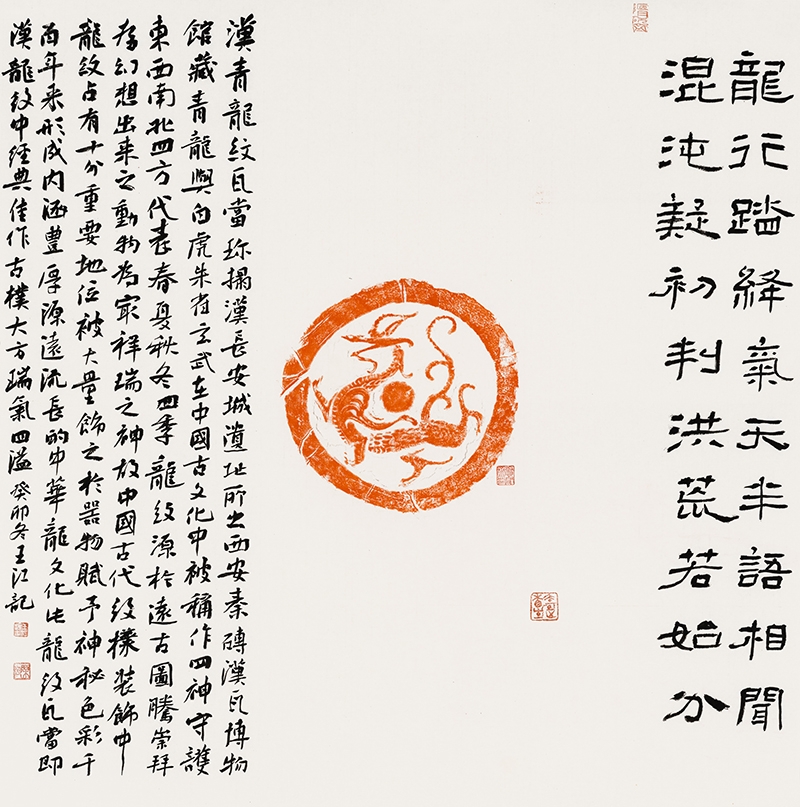 龍行踏絳氣天半語相聞
混沌疑初判洪荒若始分
漢青龍紋瓦當珎搨漢長安城遺址所出西安秦磚漢瓦博物
館藏青龍與白虎朱雀玄武在中國古文化中被稱作四神守護
東西南北四方代表春夏秋冬四季龍紋源於遠古圖騰崇拜
存幻想出来之動物為最祥瑞之神故中國古代紋樣装飾中
龍紋占有十分重要地位被大量飾之於器物賦予神秘色彩千
百年来形成内涵豐厚源遠流長的中華龍文化此龍紋瓦當即
漢龍紋中經典佳作古樸大方瑞氣四溢癸卯冬王江記